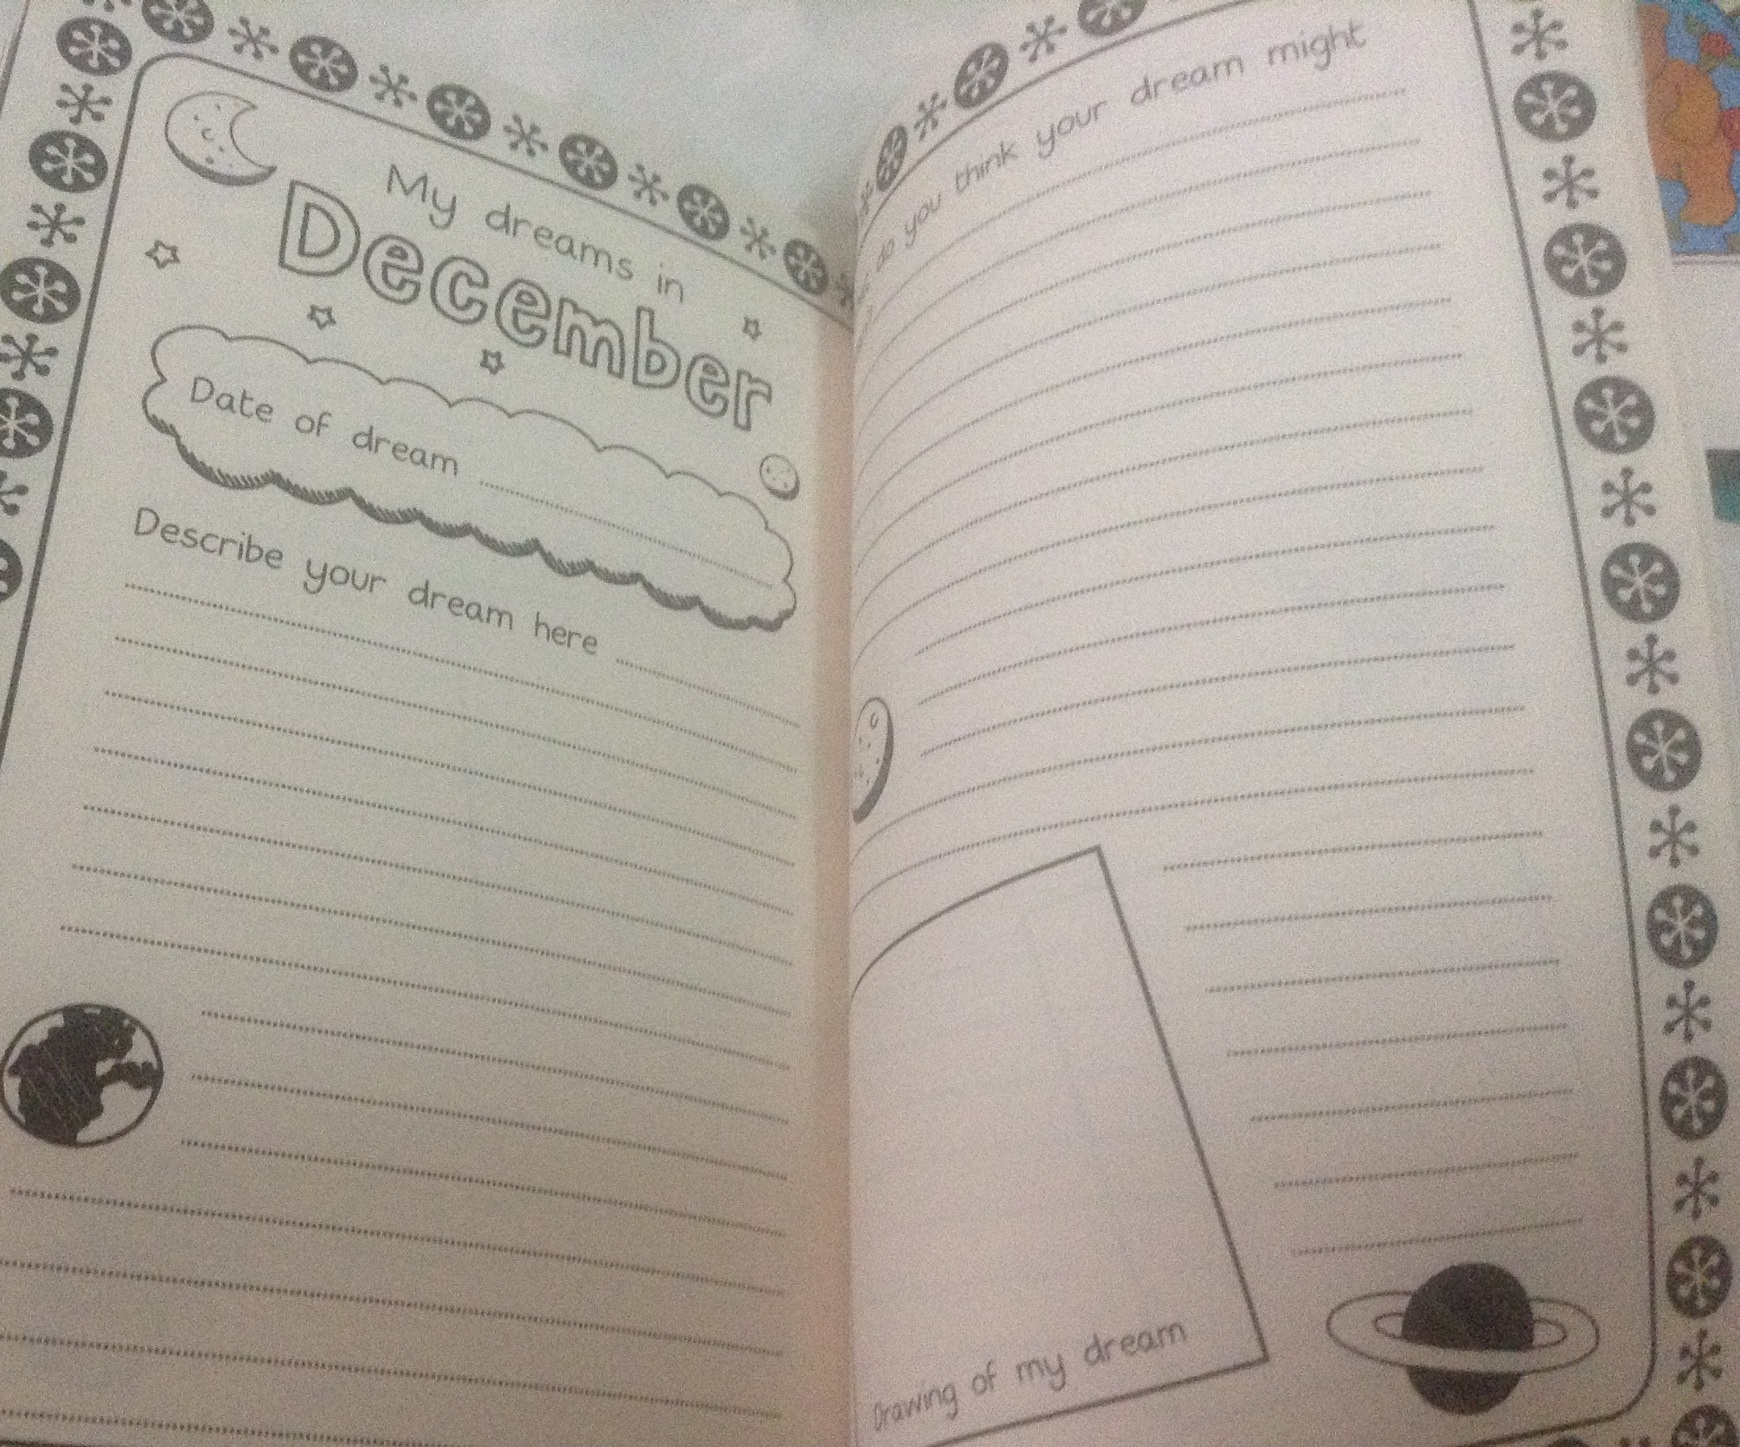 My dreams in
December
Date of dream
Describe your dream here
do you think your dream might
Drawing of my dream